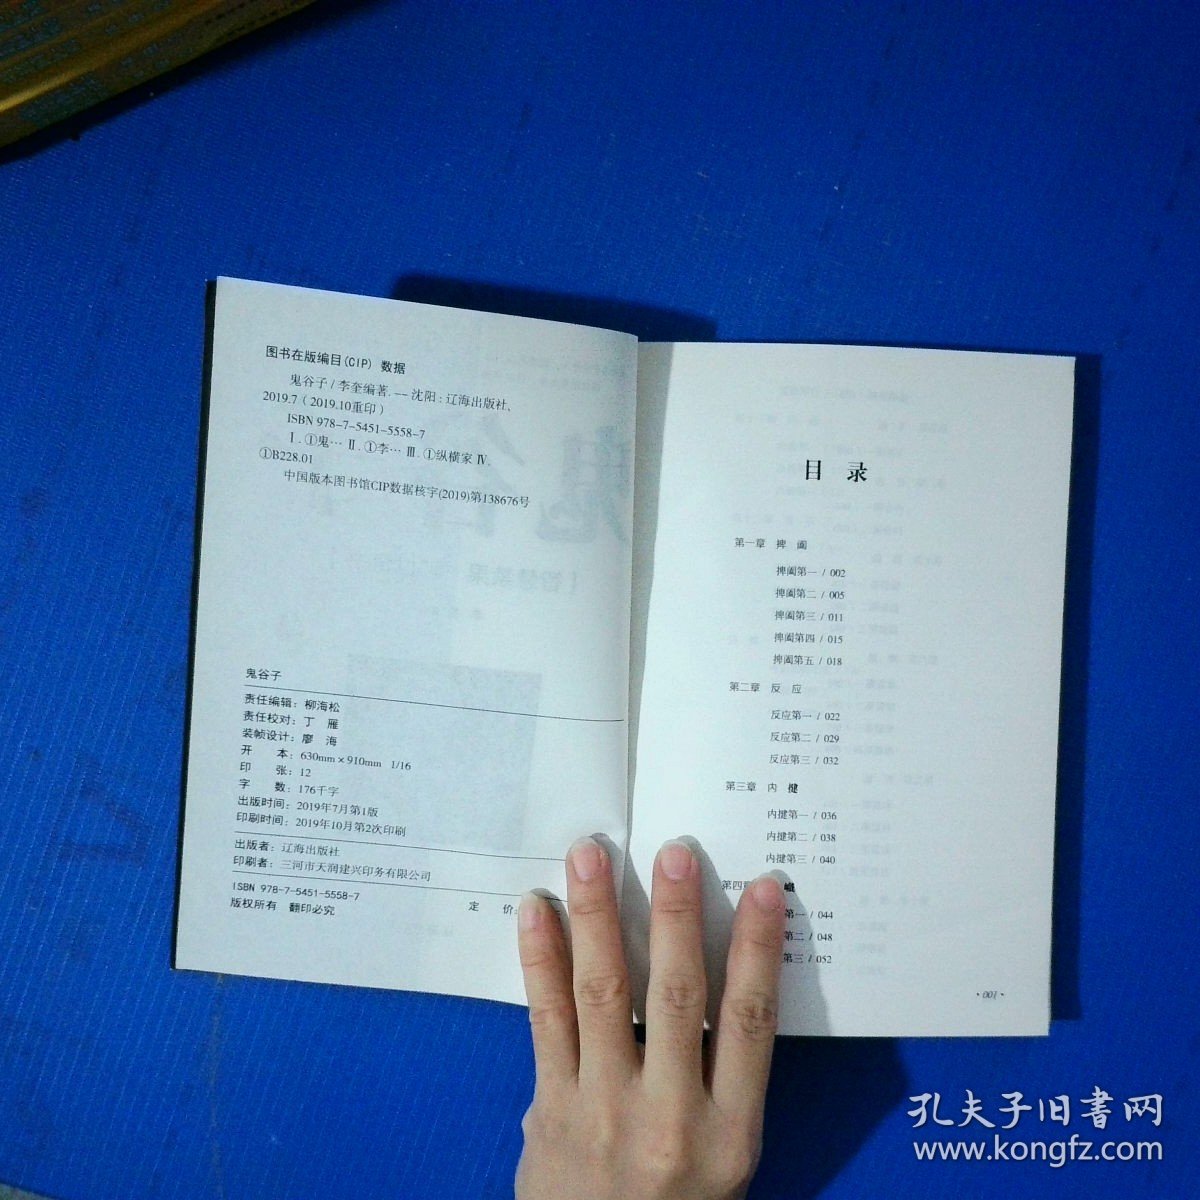 图书在版编目(CIP) 数据
鬼谷子/李奎编著. -- 沈阳:辽海出版社、
2019.7(2019.10重印)
ISBN 978-7-5451-5558-7
Ⅰ.①鬼… Ⅱ.①李… Ⅲ.①纵横家 Ⅳ.
①B228.01
中国版本图书馆CIP数据核字(2019)第138676号
鬼谷子
责任编辑:柳海松
责任校对:丁 雁
装帧设计:廖 海
开 本:630mm×910mm 1/16
印 张:12
字 数:176千字
出版时间:2019年7月第1版
印刷时间:2019年10月第2次印刷
出版者:辽海出版社
印刷者:三河市天润建兴印务有限公司
ISBN 978-7-5451-5558-7
版权所有 翻印必究
定 价:
目 录
第一章 捭 阖
捭阖第一/002
捭阖第二/005
捭阖第三/011
捭阖第四/015
捭阖第五/018
第二章 反 应
反应第一/022
反应第二/029
反应第三/032
第三章 内 揵
内揵第一/036
内揵第二/038
内揵第三/040
第四 巇
第一/044
第二/048
第三/052
·001·
孔夫子旧書网
www.kongfz.com